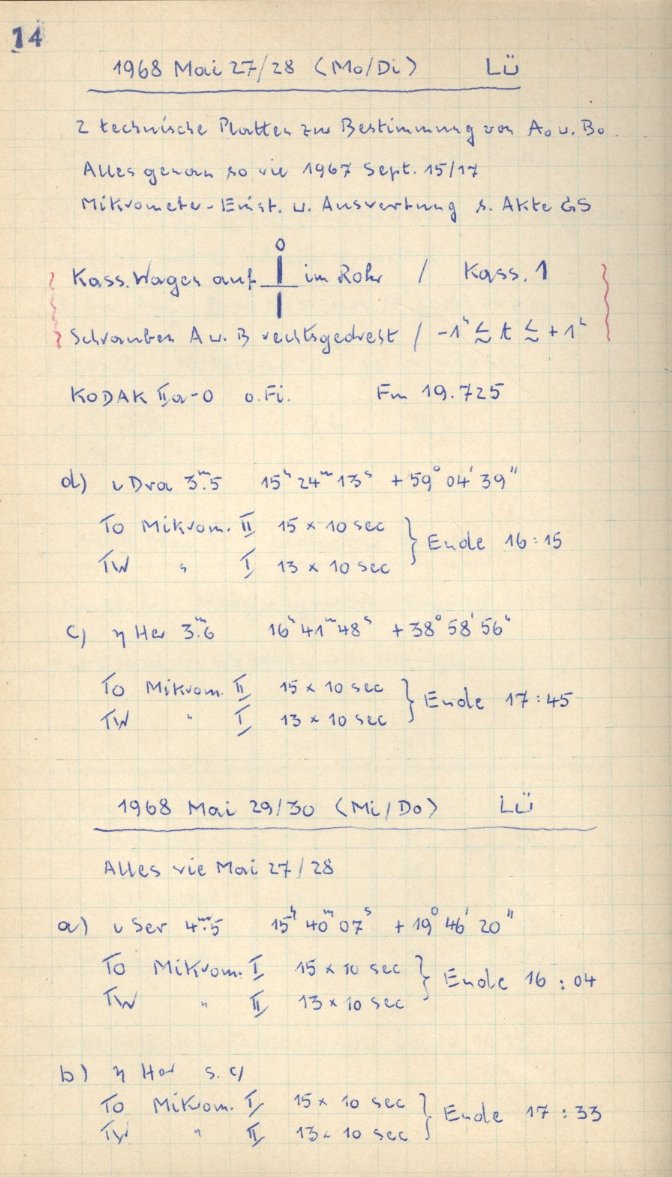 14
1968 Mai 27/28 (Mo/Di) Lü
2 technische Platten zur Bestimmung von A₀ u. B₀.
Alles genau so wie 1967 Sept. 15/17
Mikrometer-Einst. u. Auswertung s. Akte GS
0
Kass. Wagen auf im Rohr / Kass. 1
Schrauben A u. B rechtsgedreht / -1ʰ ≤ t ≤ +1ʰ
KODAK IIa-O o.Fi. Fm 19.725
d) ι Dra 3ᵐ.5 15ʰ 24ᵐ 13ˢ +59° 04' 39"
TO Mikrom. II 15 x 10 sec } Ende 16:15
TW " I 13 x 10 sec
c) η Her 3ᵐ.6 16ʰ 41ᵐ 48ˢ +38° 58' 56"
TO Mikrom. II 15 x 10 sec } Ende 17:45
TW " I 13 x 10 sec
1968 Mai 29/30 (Mi/Do) Lü
Alles wie Mai 27/28
a) ι Ser 4ᵐ.5 15ʰ 40ᵐ 07ˢ +19° 46' 20"
TO Mikrom. I 15 x 10 sec } Ende 16:04
TW " II 13 x 10 sec
b) η Her s. c)
TO Mikrom. I 15 x 10 sec } Ende 17:33
TW " II 13 x 10 sec